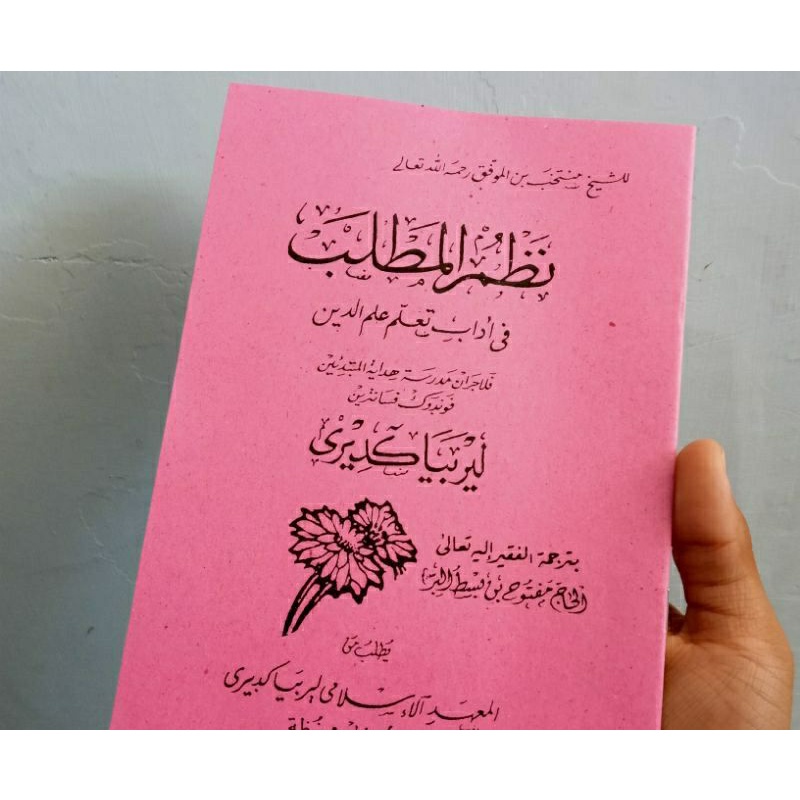 للشيخ منتخب بن الموفق رحمه الله تعالى
نَظْمُ المَطْلَب
في اداب تعلّم علم الدين
فلاجران مدرسة هداية المبتدئين
فوندوك فسانترين
ليربيا كديري
بترجمة الفقير إليه تعالى
الحاج مفتوح بن بسط البر
يطلب من
المعهد الاسلامى ليربيا كديرى